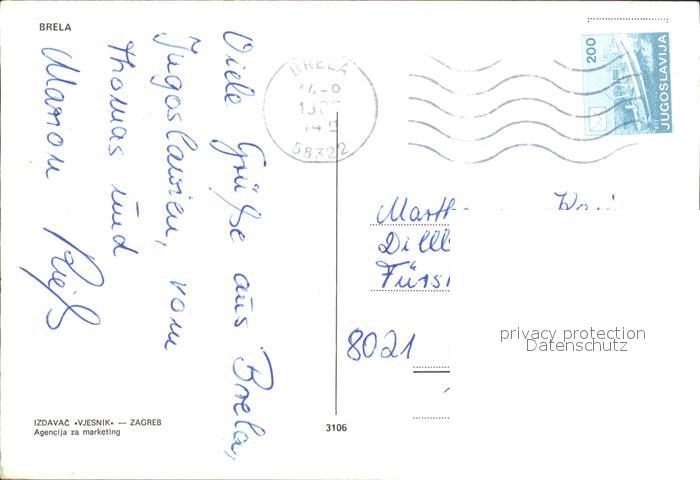 BRELA
Viele Grüße aus Brela,
Jugoslawien, vom
Thomas und
Marion
BRELA
58322
200
JUGOSLAVIJA
Dillb
Fürst
8021
privacy protection
Datenschutz
IZDAVAČ »VJESNIK« — ZAGREB
Agencija za marketing
3106